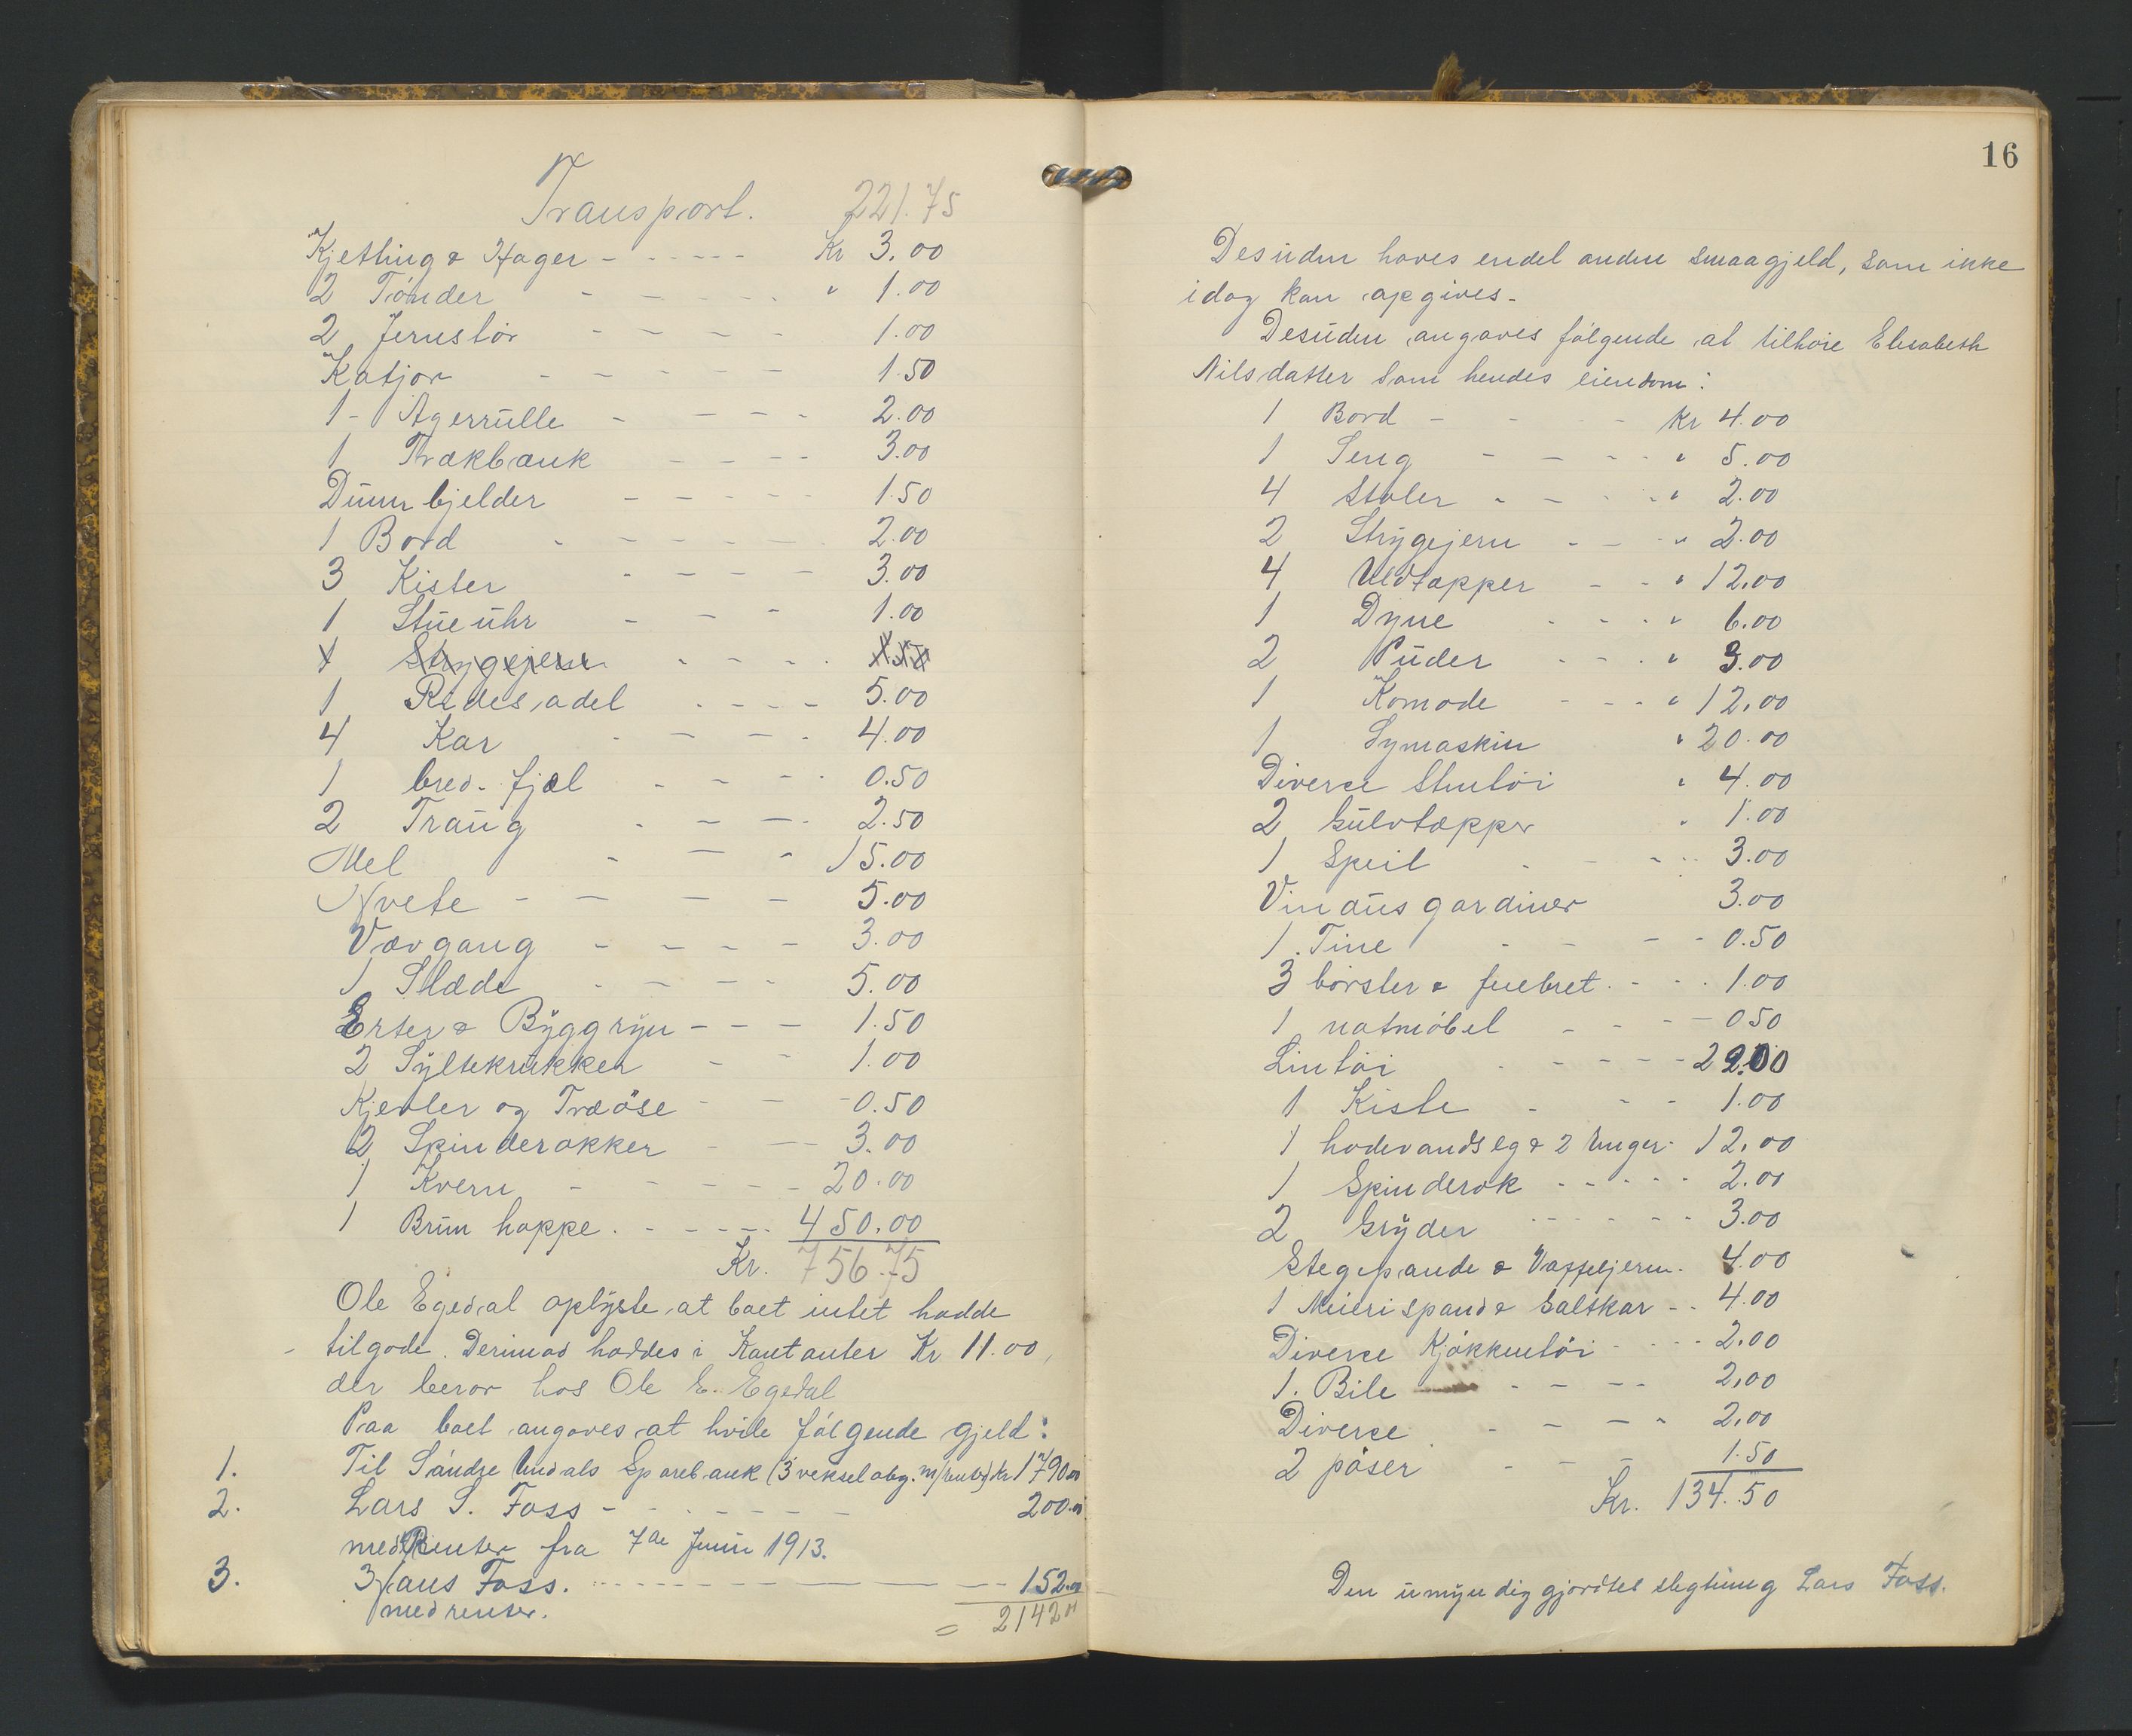 Transport. 221.75
Kjetling & Hager - - - - - Kr 3.00
2 Tønder - - - - - " 1.00
2 Jernstör - - - - 1.00
Katjor - - - - - 1.50
1 - Agerrulle - - - - 2.00
1 Trækbænk - - - - 3.00
Dunn bjelder - - - - - 1.50
1 Bord - - - - - - 2.00
3 Kister - - - - - 3.00
1 Stueuhr - - - 1.00
1 Strygejern - - - -
1 Ridesadel - - - - 5.00
4 Kar - - - - 4.00
1 bred. fjæl - - - - 0.50
2 Traug - - - - 2.50
Mel - - - 15.00
Hvete - - - - 5.00
Vævgang - - - - 3.00
1 Slæde - - - - 5.00
Erter & Byggryn - - - 1.50
2 Syltekrukker - - 1.00
Kjevler og Træöse - - - 0.50
2 Spinderokker - - - 3.00
1 Kvern - - - - - 20.00
1 Brun hoppe. - - - - - 450.00
Kr. 756.75
Ole Egedal oplyste, at boet intet hadde
tilgode. Derimod haddes i Kontanter Kr 11.00,
der beror hos Ole E. Egedal
Paa boet angaves at hvile følgende gjeld:
1. Til Søndre Undals Sparebank (3 vekselobg. m/renter) Kr 1790.00
2. Lars S. Foss - - - - - - - 200.00
med Renter fra 7de Juni 1913.
3. Hans Foss. - - - - - - - - 152.00
med renter.
= 2142.00
16
Desuden haves endel anden smaagjeld, som ikke
idag kan opgives.
Desuden angaves følgende at tilhøre Elisabeth
Nilsdatter som hendes eiendom:
1 Bord - - - Kr 4.00
1 Seng - - - - " 5.00
4 Stoler - - - - " 2.00
2 Strygejern - - - " 2.00
4 Uldtæpper - - " 12.00
1 Dyne - - - " 6.00
2 Puder - - - " 3.00
1 Komode - - - " 12.00
1 Symaskin " 20.00
Diverse Stentöi " 4.00
2 Gulvtæpper " 1.00
1 Speil - - - - 3.00
Vindusgardiner 3.00
1 Tine - - - - 0.50
3 börster & feiebret. - - - 1.00
1 natmöbel - - - - 0 50
Lintöi - - - - - 22.00
1 Kiste - - - 1.00
1 hodevandseg & 2 Unger - 12.00
1 Spinderok - - - - - 2.00
2 Gryder - - - - - - 3.00
Stegepande & Vaffeljern - 4.00
1 Meierispand & Saltkar - - 4.00
Diverse Kjökkentöi - - - - 2.00
1. Bile - - - - 2.00
Diverse - - - - 2.00
2 pöser - - - 1.50
Kr. 134.50
Den umyndiggjordtes slegtning Lars Foss.